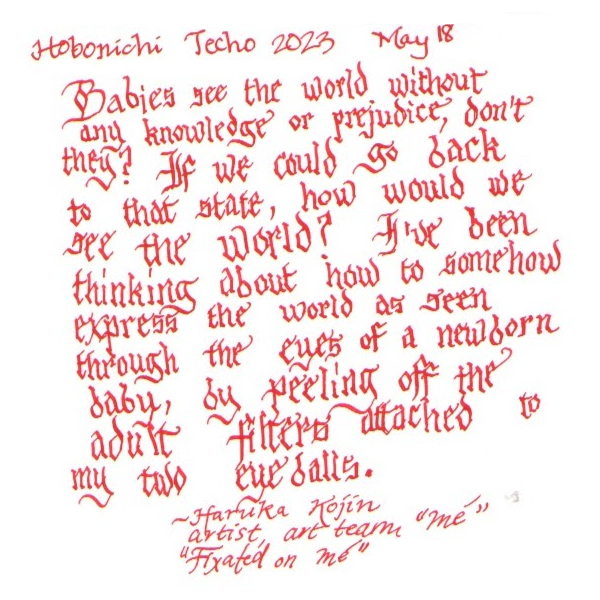 Hobonichi Techo 2023 May 18
Babies see the world without
any knowledge or prejudice, don't
they? If we could go back
to that state, how would we
see the world? I've been
thinking about how to somehow
express the world as seen
through the eyes of a newborn
baby, by peeling off the
adult filters attached to
my two eyeballs.
~Haruka Kojin
artist, art team "mé"
"Fixated on mé"